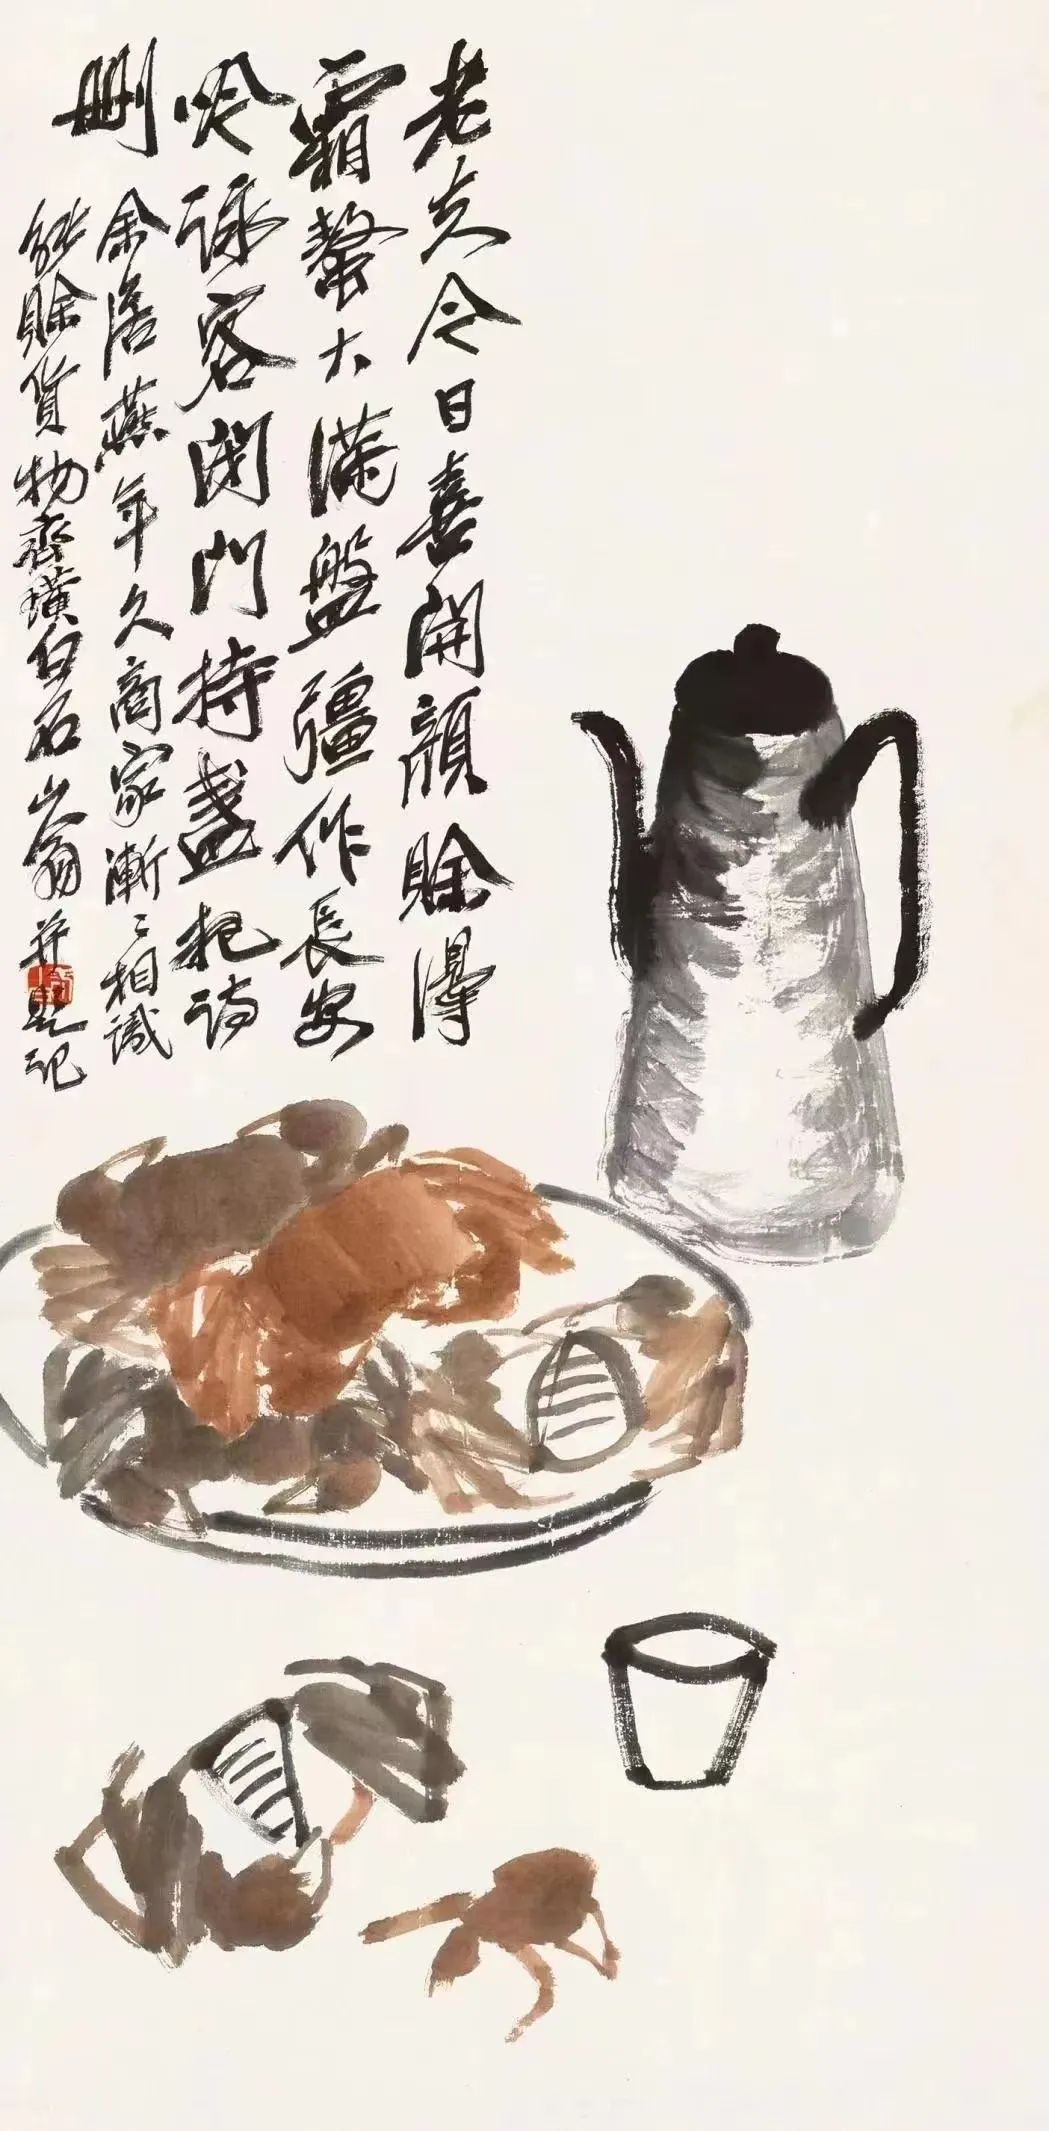 老夫今日喜開顏賒得
霜螯大滿盤彊作長安
吟詠客閉門持盞把詩
刪
余居燕年久商家漸二相識
能賒貨物齊璜白石山翁并題記